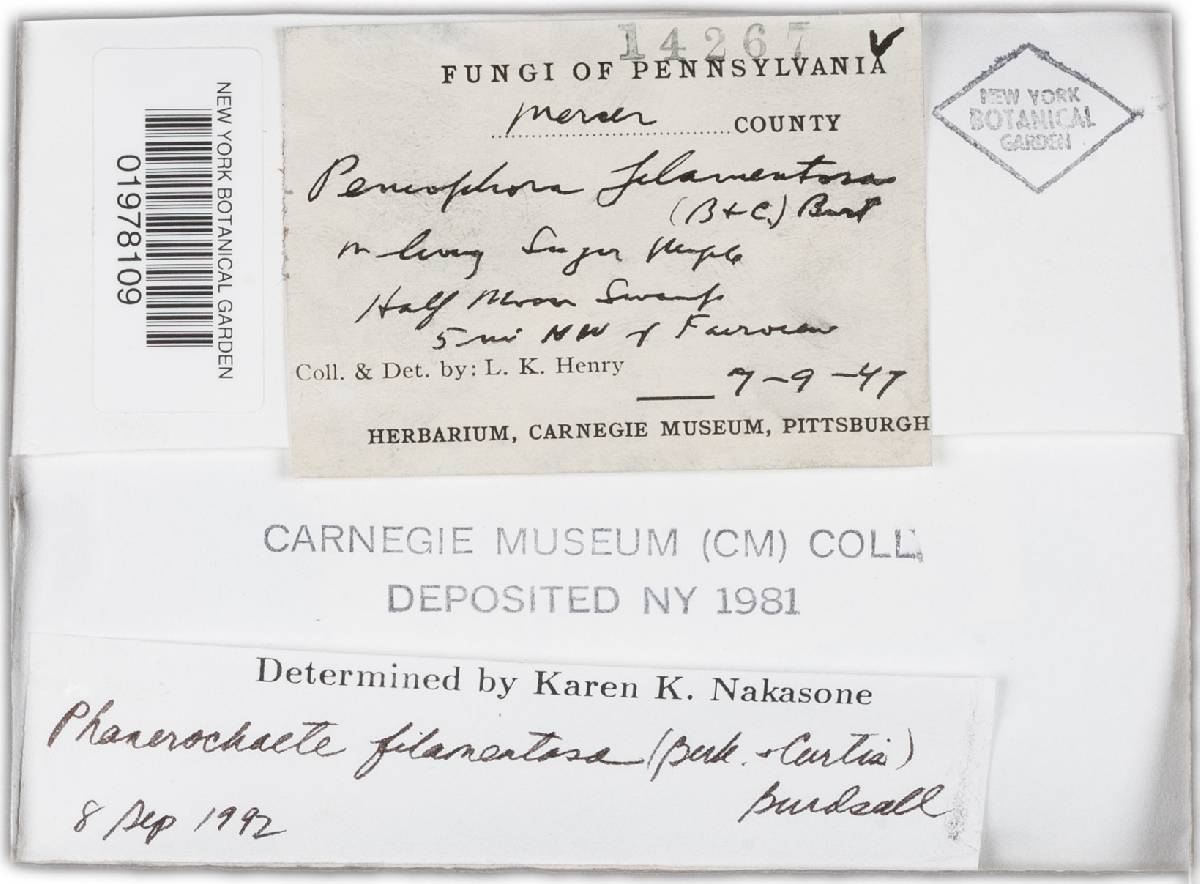 14267 ✓
FUNGI OF PENNSYLVANIA
Mercer COUNTY
Peniophora filamentosa
(B & C.) Burt
on living Sugar Maple
Half Moon Swamp
5 mi NW of Fairview
Coll. & Det. by: L. K. Henry
7-9-47
HERBARIUM, CARNEGIE MUSEUM, PITTSBURGH
NEW YORK BOTANICAL GARDEN
01978109
NEW YORK
BOTANICAL
GARDEN
CARNEGIE MUSEUM (CM) COLL.
DEPOSITED NY 1981
Determined by Karen K. Nakasone
Phanerochaete filamentosa (Berk. + Curtis)
Burdsall
8 Sep 1992